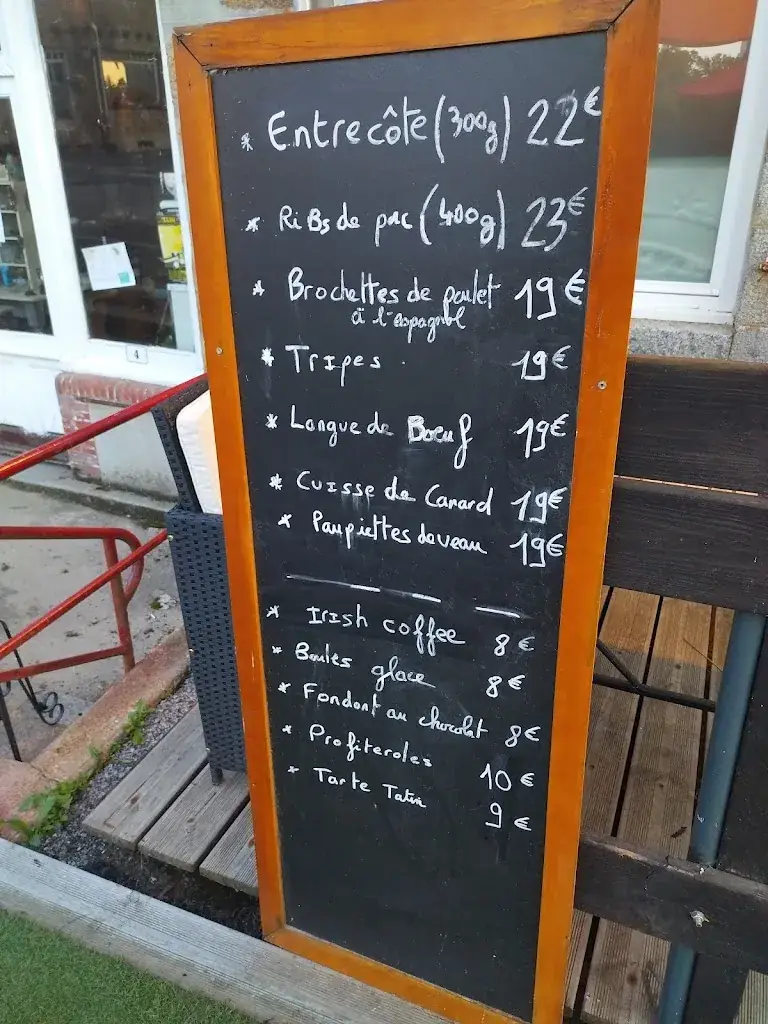 * Entrecôte (300g) 22€
* Ribs de porc (400g) 23€
* Brochettes de poulet 19€
à l'espagnol
* Tripes 19€
* Langue de Boeuf 19€
* Cuisse de Canard 19€
* Paupiettes de veau 19€
* Irish coffee 8€
* Boules glace 8€
* Fondant au chocolat 8€
* Profiteroles 10€
* Tarte Tatin 9€
4